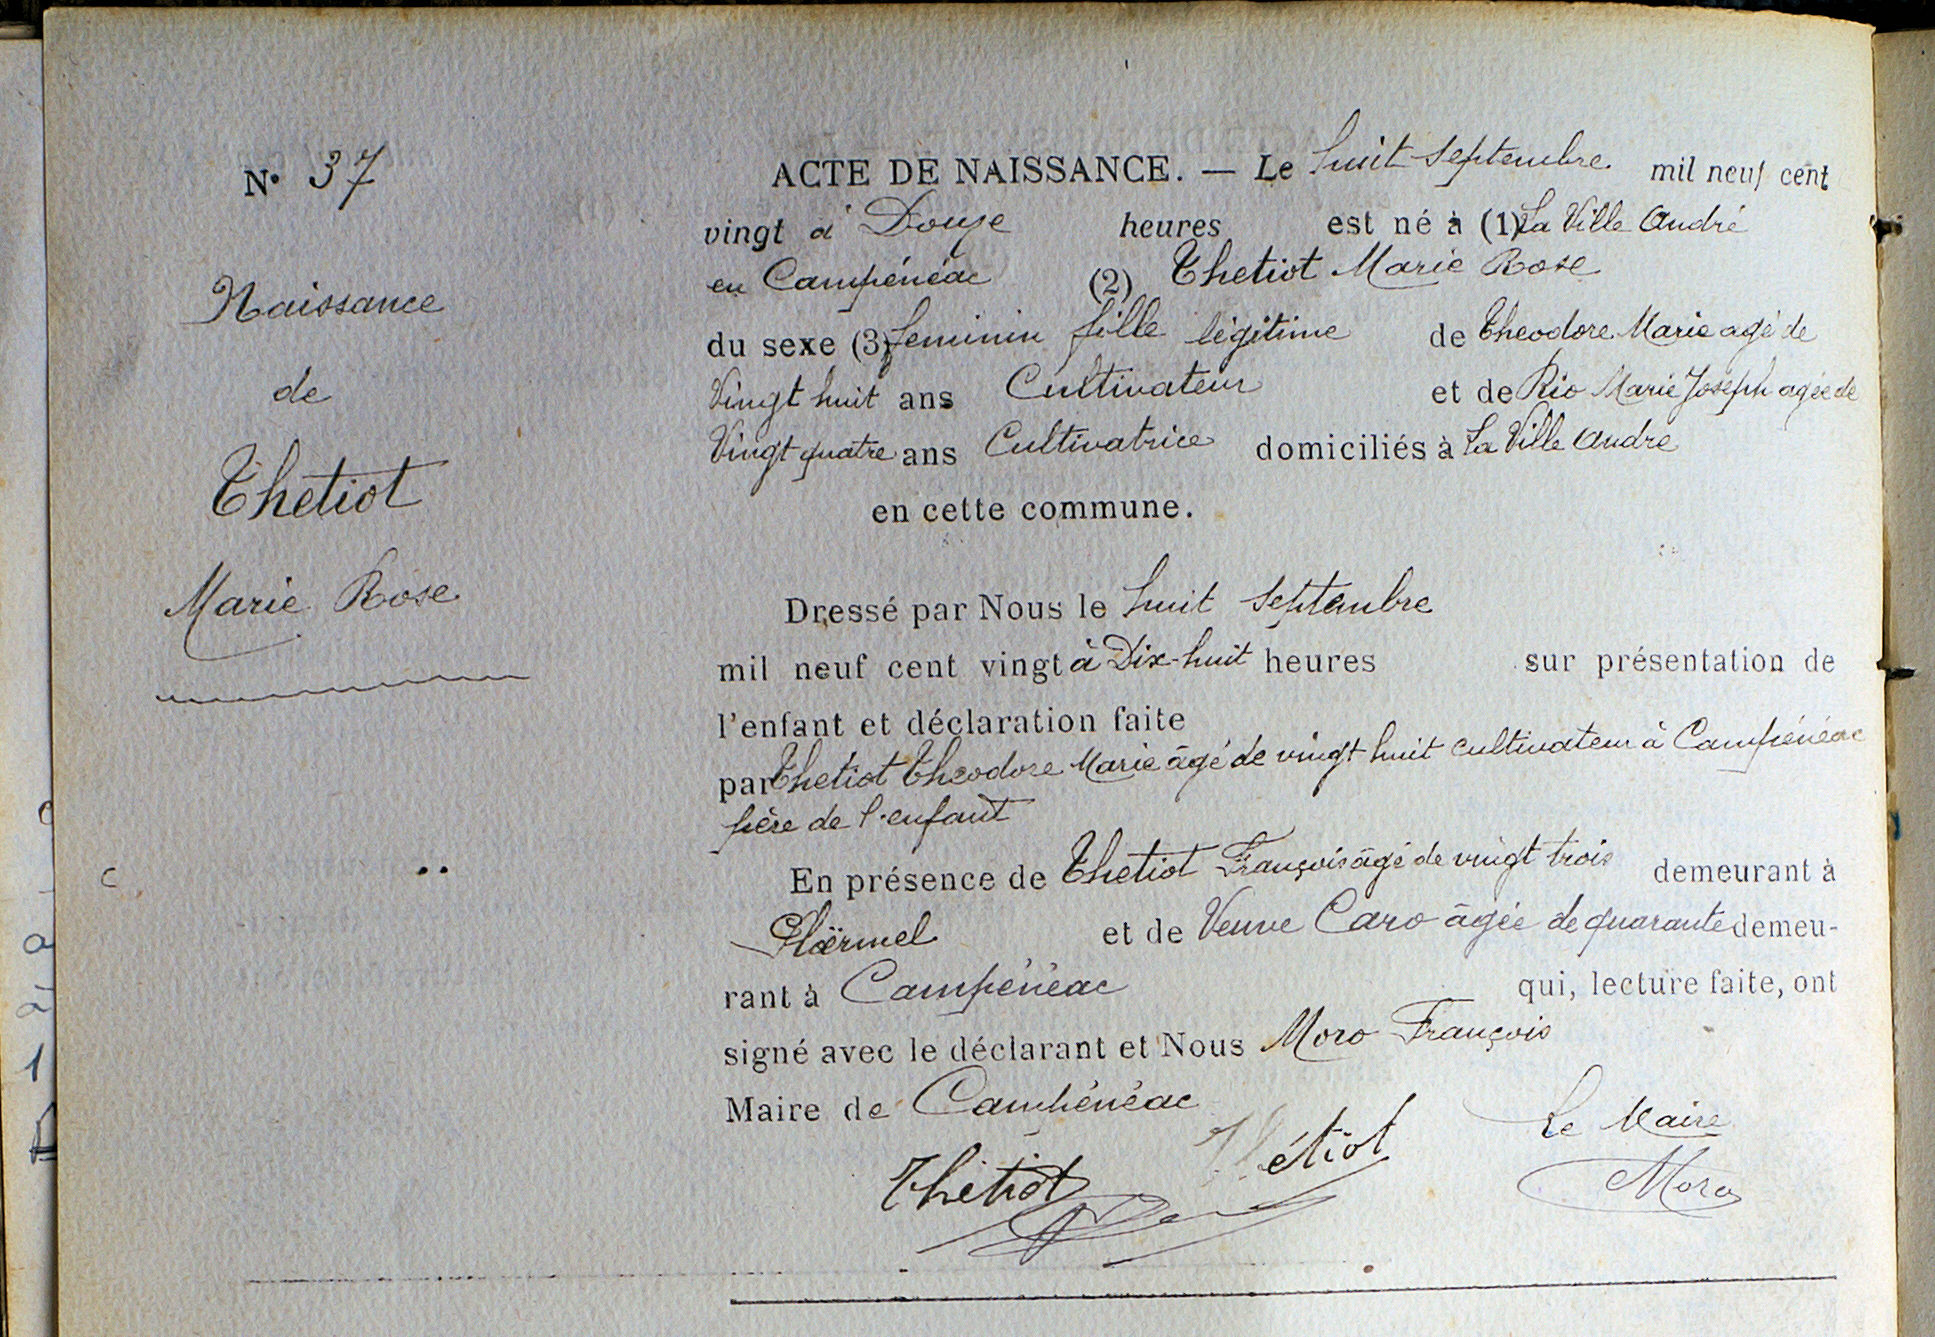 N° 37
Naissance
de
Thetiot
Marie Rose
ACTE DE NAISSANCE. — Le huit septembre mil neuf cent
vingt à Douze heures est né à (1) La Ville André
en Campénéac (2) Thetiot Marie Rose
du sexe (3) feminin fille légitime de Theodore Marie agé de
Vingt huit ans Cultivateur et de Rio Marie Joseph agée de
Vingt quatre ans Cultivatrice domiciliés à La Ville Andre
en cette commune.
Dressé par Nous le huit septembre
mil neuf cent vingt à Dix-huit heures sur présentation de
l'enfant et déclaration faite
par Thetiot Theodore Marie âgé de vingt huit cultivateur à Campénéac
père de l'enfant
En présence de Thetiot François âgé de vingt trois demeurant à
Ploërmel et de Veuve Caro âgée de quarante demeu-
rant à Campénéac qui, lecture faite, ont
signé avec le déclarant et Nous Moro François
Maire de Campénéac
Thétiot Thétiot Le Maire
Moro